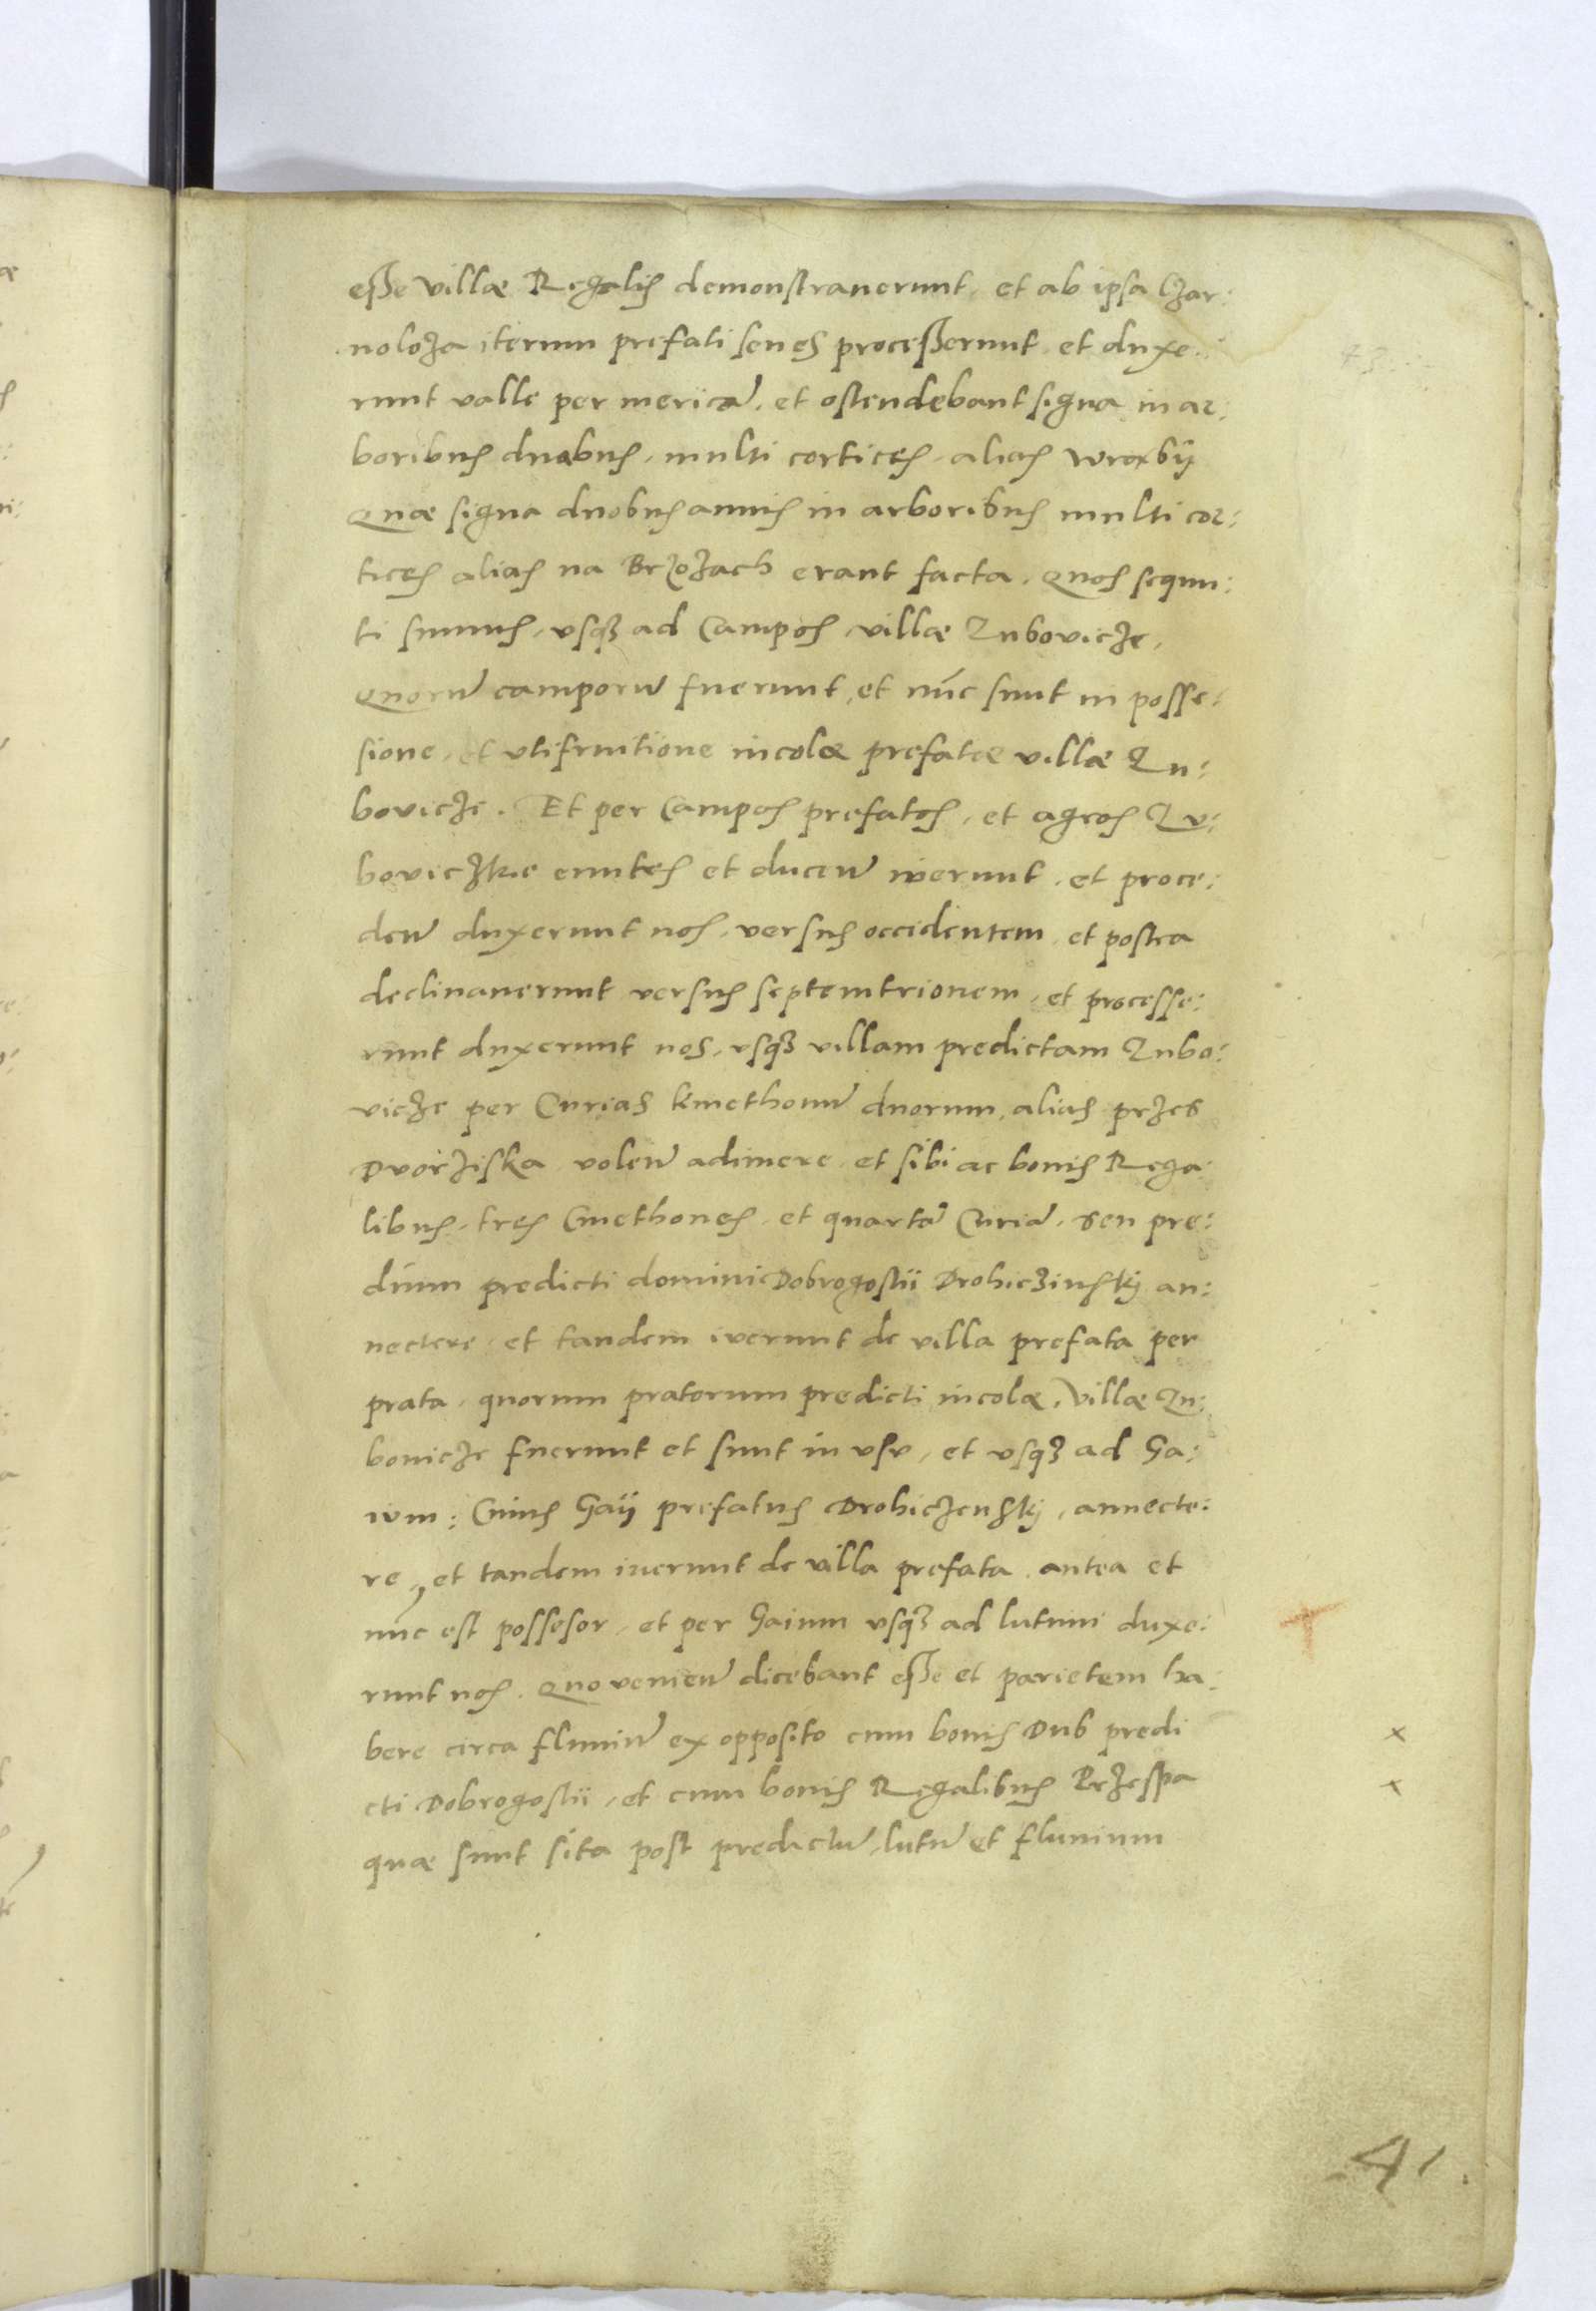 esse villæ Regalis demonstrauerunt, et ab ipsa Czar:
noloza iterum prefati senes processerunt et duxe:
runt valle per mericā, et ostendebant signa in ar:
boribus duabus, multi cortices, alias wroxbÿ
Quæ signa duobus annis in arboribus multi cor:
tices alias na Brzozach erant facta, quos sequu:
ti sumus, vsq3 ad Campos villæ Lubovicze,
Quorū camporū fuerunt, et nūc sunt in posse:
sione, et vtifruitione incolæ prefatæ villæ Lu:
bovicze. Et per Campos prefatos, et agros Lv:
boviczkie euntes et ducen̄ iverunt, et proce:
den̄ duxerunt nos, versus occidentem, et postea
declinauerunt versus septemtrionem, et processe:
runt duxerunt nos, vsq3 villam predictam Lubo:
vicze per Curias kmethonū duorum, alias przes
Dvorziska volen̄ adimere, et sibi ac bonis Rega:
libus, tres Cmethones, et quartā Curiā, seu pre:
dium predicti domini Dobrogostii Drohiczinskÿ an:
nectere et tandem iverunt de villa prefata per
prata, quorum pratorum predicti incolæ, villæ Lu:
bouicze fuerunt et sunt in vsv, et vsq3 ad Ga:
ium: Cuius Gaÿ prefatus Drohiczenskÿ, annecte:
re, et tandem iuerunt de villa prefata antea et
nūc est possesor, et per Gaium vsq3 ad lutum duxe:
runt nos. Quo venien̄ dicebant esse et parietem ha:
bere circa fluuiū ex opposito cum bonis Dub predi
cti Dobrogostii, et cum bonis Regalibus Przespa
quæ sunt sita post predictū, lutū et fluuium
x
x
41